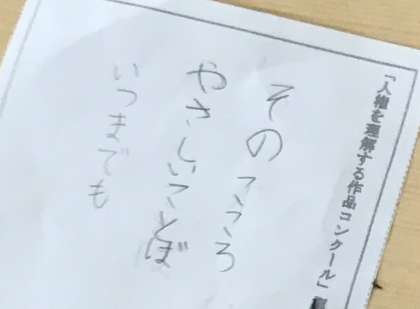 「人権を理解する作品コンクール」
そのこころ
やさしいことば
いつまでも